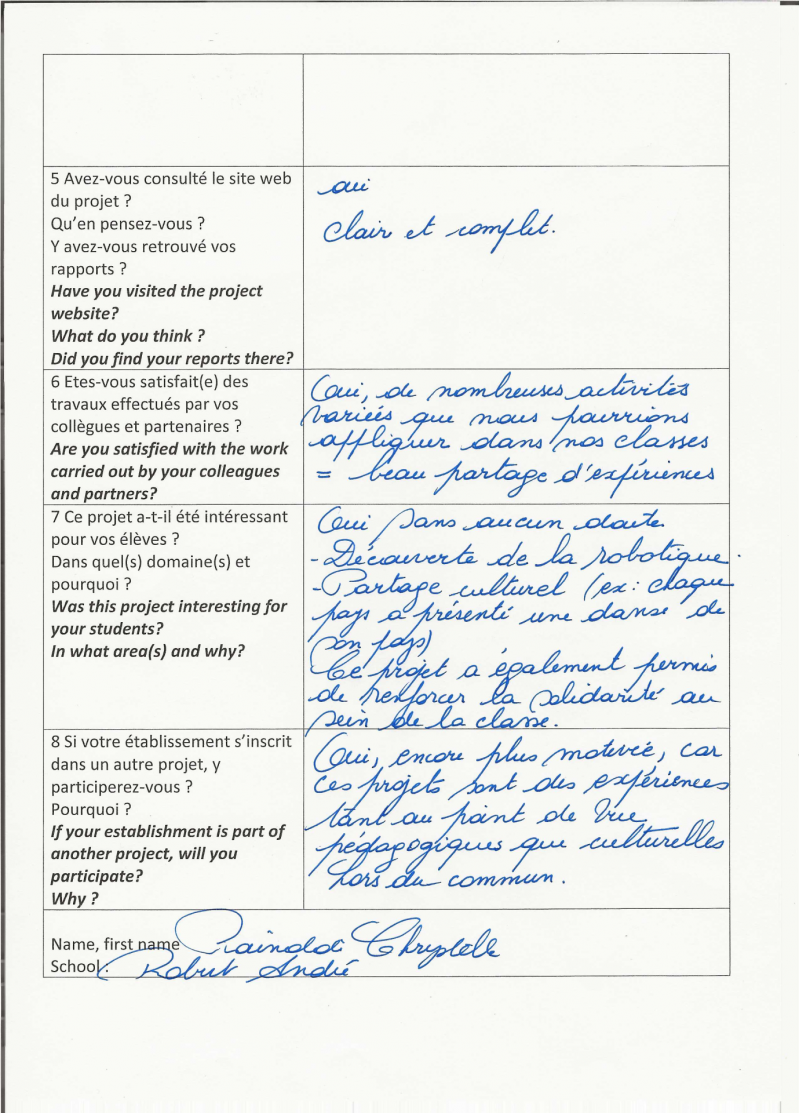 5 Avez-vous consulté le site web
du projet ?
Qu'en pensez-vous ?
Y avez-vous retrouvé vos
rapports ?
Have you visited the project
website?
What do you think ?
Did you find your reports there?
oui
Clair et complet.
6 Etes-vous satisfait(e) des
travaux effectués par vos
collègues et partenaires ?
Are you satisfied with the work
carried out by your colleagues
and partners?
Oui, de nombreuses activités
variées que nous pourrions
appliquer dans nos classes
= beau partage d'expériences
7 Ce projet a-t-il été intéressant
pour vos élèves ?
Dans quel(s) domaine(s) et
pourquoi ?
Was this project interesting for
your students?
In what area(s) and why?
Oui sans aucun doute
- Découverte de la robotique.
- Partage culturel (ex: chaque
pays a présenté une danse de
son pays)
Ce projet a également permis
de renforcer la solidarité au
sein de la classe.
8 Si votre établissement s'inscrit
dans un autre projet, y
participerez-vous ?
Pourquoi ?
If your establishment is part of
another project, will you
participate?
Why ?
Oui, encore plus motivée, car
ces projets sont des expériences
tant au point de vue
pédagogiques que culturelles
hors du commun.
Name, first name Chrystelle
School: Robert André